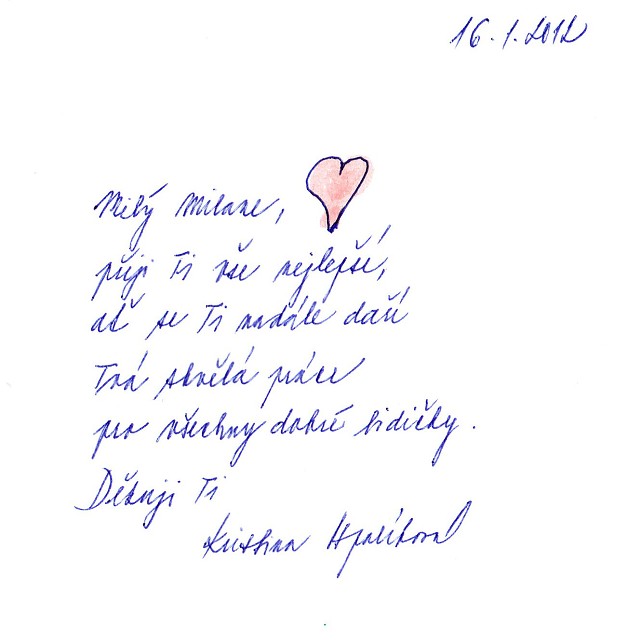 16.1.2012
Milý Milane,
přeji Ti vše nejlepší,
ať se Ti nadále daří
Tvá skvělá práce
pro všechny dobré lidičky.
Děkuji Ti
Kristina